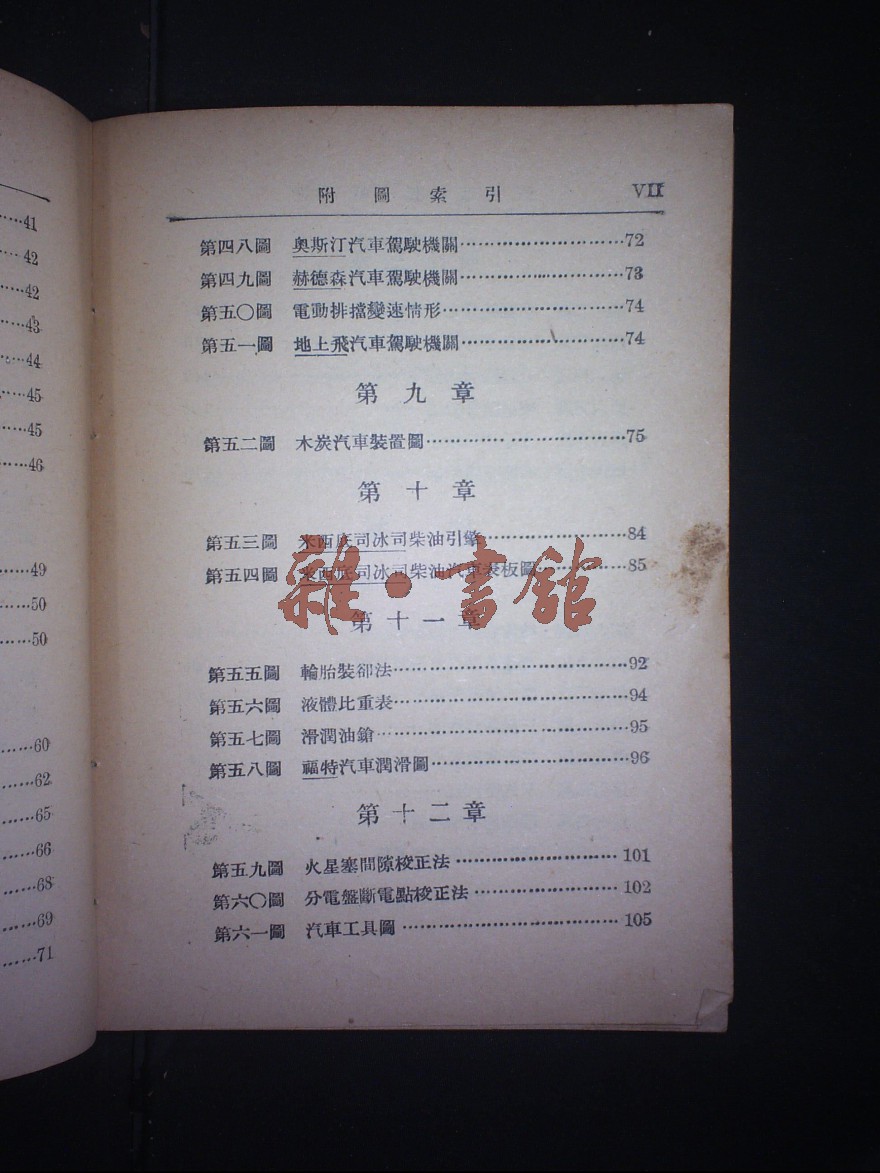 41
42
42
43
44
45
45
46
49
50
50
60
62
65
66
68
69
71
附圖索引 VII
第四八圖 奧斯汀汽車駕駛機關…72
第四九圖 赫德森汽車駕駛機關…73
第五〇圖 電動排擋變速情形…74
第五一圖 地上飛汽車駕駛機關…74
第九章
第五二圖 木炭汽車裝置圖…75
第十章
第五三圖 米西底司冰司柴油引擎…84
第五四圖 米西底司冰司柴油汽車表板圖…85
雜·書館
第十一章
第五五圖 輪胎裝卻法…92
第五六圖 液體比重表…94
第五七圖 滑潤油鎗…95
第五八圖 福特汽車潤滑圖…96
第十二章
第五九圖 火星塞間隙校正法…101
第六〇圖 分電盤斷電點校正法…102
第六一圖 汽車工具圖…105